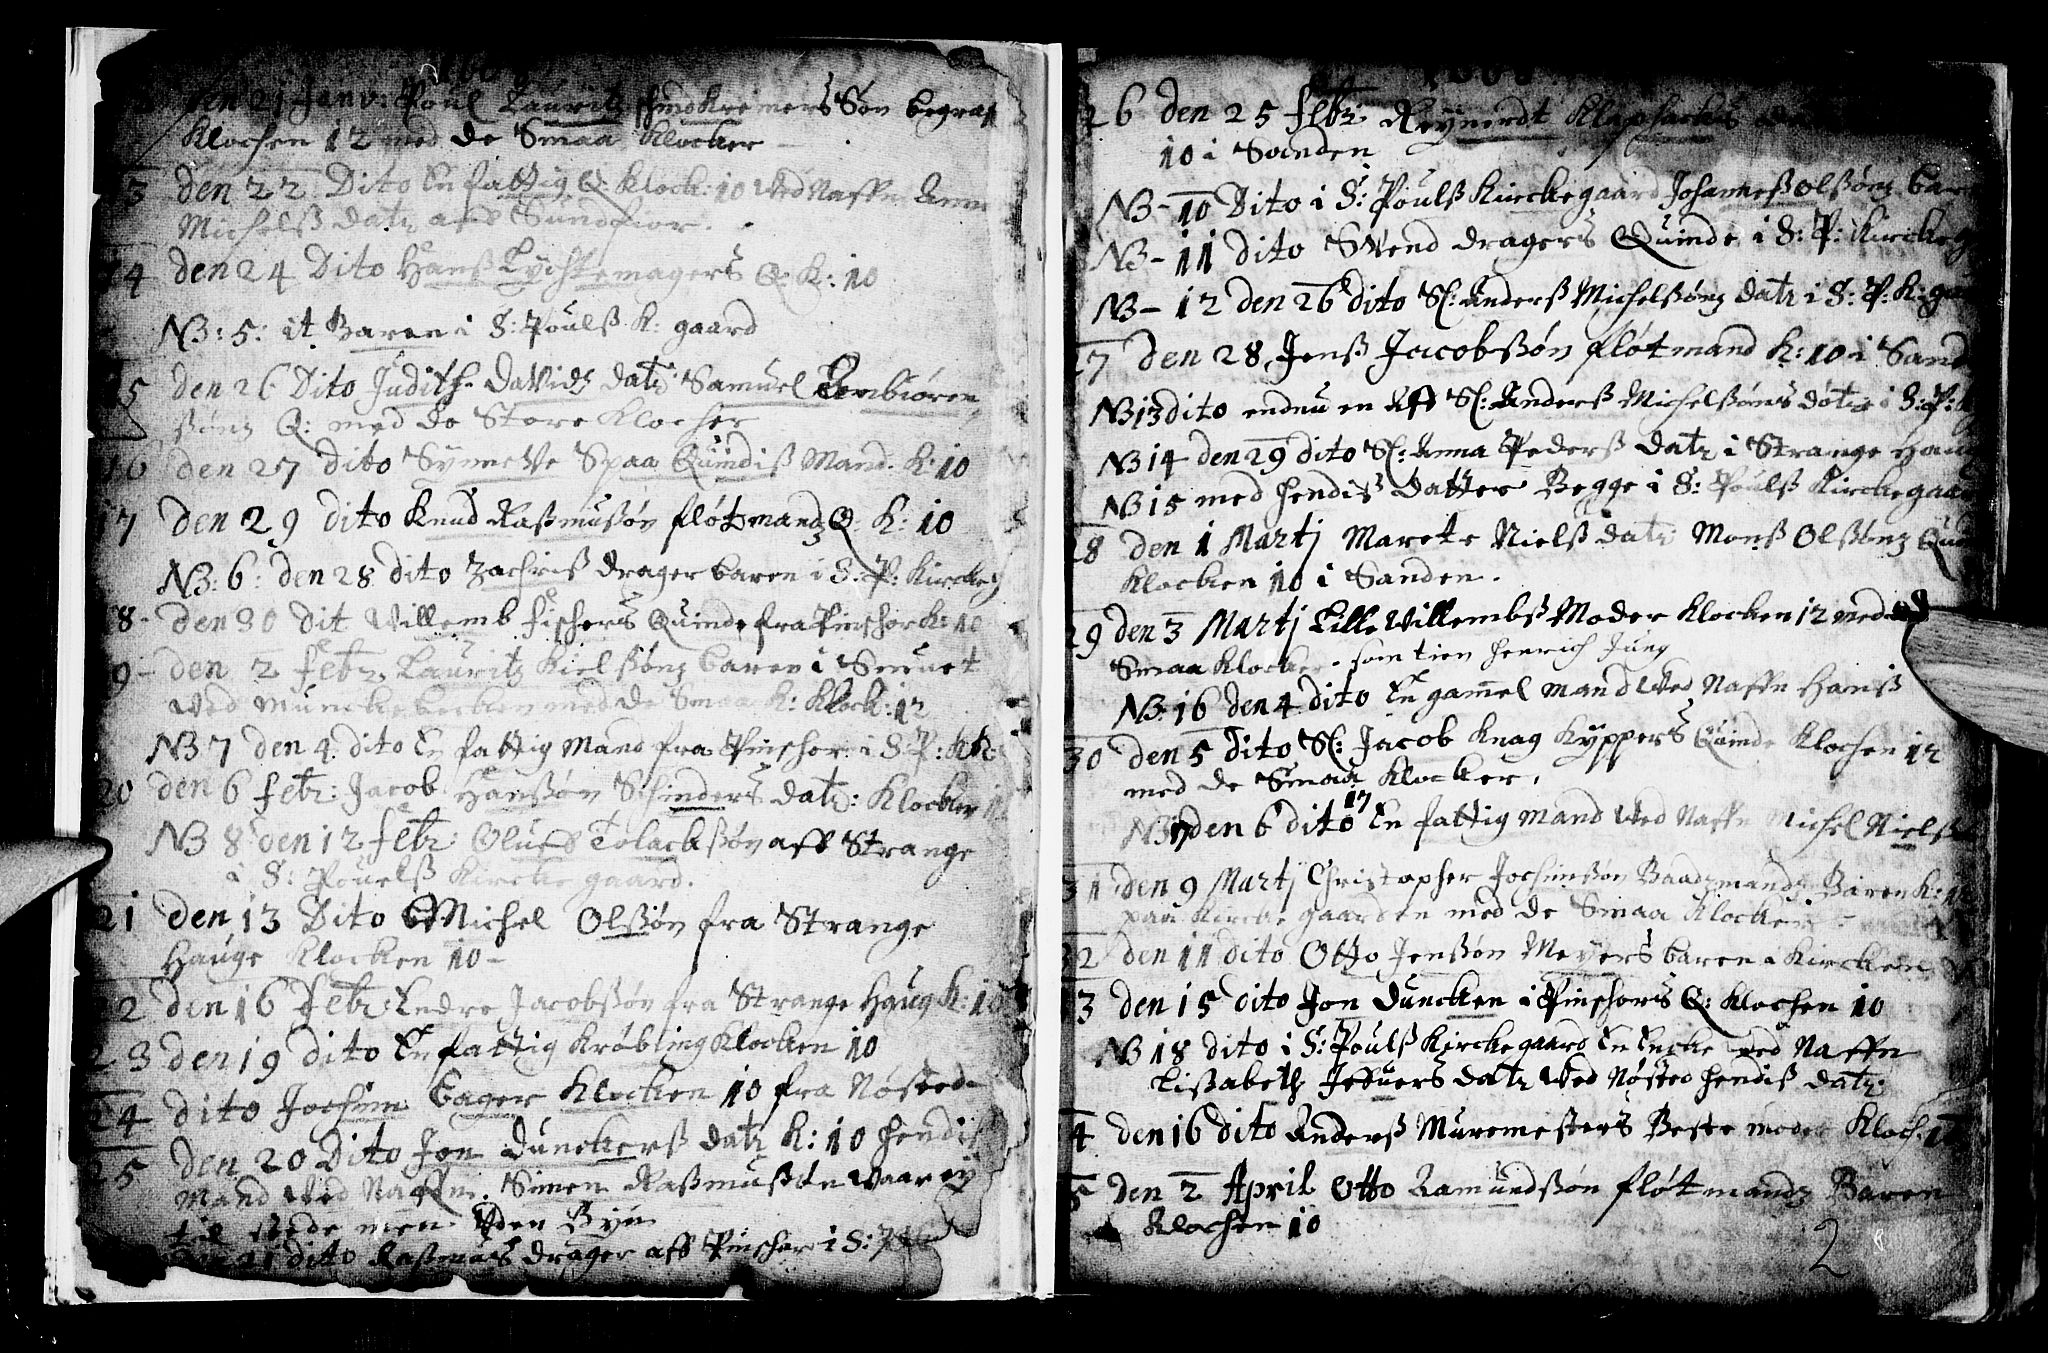 den 21 Janv: Poul Lauritz Søn begraf
Klochen 12 med de Smaa Klocker
13 den 22 Dito En fattig Q: Klock: 10 Ved Naffn Ann
Michelß datr aff Sundfior.
14 den 24 Dito Hanß Lychtemagers Q: K: 10
NB: 5: it Baren i S: Poulß K: gaard
15 den 26 Dito Judith Davidz datr Samuel Tonbiøren
ßønz Q: med de Store Klocher
16 den 27 dito Synneve Spaa Quindiß Mand. K: 10
17 den 29 dito Knud Raßmusøn fløtmandz Q: K: 10
NB: 6: den 28 dito Zachriß drager baren i S: P: Kirckeg
8 - den 30 dit Willemb fischers Quinde fra Pinschor K: 10
9 - den 2 febr. Lauritz Kielßønz baren i Smuet
Ved Munckebecken med de Smaa K: Klock: 12
NB 7 den 4 dito En fattig Mand fra Pinschor i S P: KK
20 den 6 febr: Jacob Hanßøn Schinders datr: Klocken
NB 8 den 12 febr: Oluff Tolackßøn aff Strange
i S: Pouelß Kircke gaard.
21 den 13 Dito Michel Olßøn fra Strange
Hauge Klocken 10 -
22 den 16 febr: Endre Jacobßøn fra Strange Haug K: 10
23 den 19 dito En fattig Krøbling Klocken 10
24 dito Jochim Bager Klocken 10 fra Nøsted
25 den 20 Dito Jon Dunckerß datr K: 10 hendiß
Mand Ved Naffn. Simen Raßmußøn Vaar ey
til stede men Uden Byn
21 dito Raßmus drager aff Pinschor i S:
26 den 25 febr: Reynerdt
10 i Sanden
NB - 10 Dito i S: Poulß Kirckegaard Johanneß Olßønz bar
NB - 11 dito Svend dragers Quinde i S: P: Kircke g
NB - 12 den 26 dito Sl: Anderß Michelßønz datr i S: P: K: ga
27 den 28 Jenß Jacobßøn fløtmand K: 10 i Sand
NB 13 dito endnu en Aff Sl: Anderß Michelßøns døtr i S: P: K
NB 14 den 29 dito Sl: Anna Pederß datr i Strange Haug
NB 15 med hendiß Datter Begge i S: Poulß Kirckegaar
28 den 1 Martj Marete Nielß datr Monß Olßønz Qui
Klocken 10 i Sanden.
29 den 3 Martj Lille Willembß Moder Klocken 12 med
Smaa Klocker. som tien Henrich Jung
NB: 16 den 4 dito En gamel mand Ved Naffn Hanß
30 den 5 dito Sl: Jacob Knag Kyppers Quinde Klochen 12
med de Smaa Klocker.
NB 17 den 6 dito 17 En fattig mand Ved Naffn Michel Nielß
31 den 9 Martj Christopher Jochimßøn Baadzmandz Baren K: 12
paa Kircke gaarden med de Smaa Klocker
32 den 11 dito Otto Jenßøn Meyers baren i Kircken
3 den 15 dito Jon Duncken i Pinschors Q: Klochen 10
NB 18 dito i S: Poulß Kirckegaard En Encke ved Naffn
Lißabeth Jetuers datr Ved Nøsted hendiß datr:
4 den 16 dito Anderß Muremesters Beste moder Kloch: 1
5 den 2 April Otto Ramundßøn fløtmandz Baren
Klochen 10
2